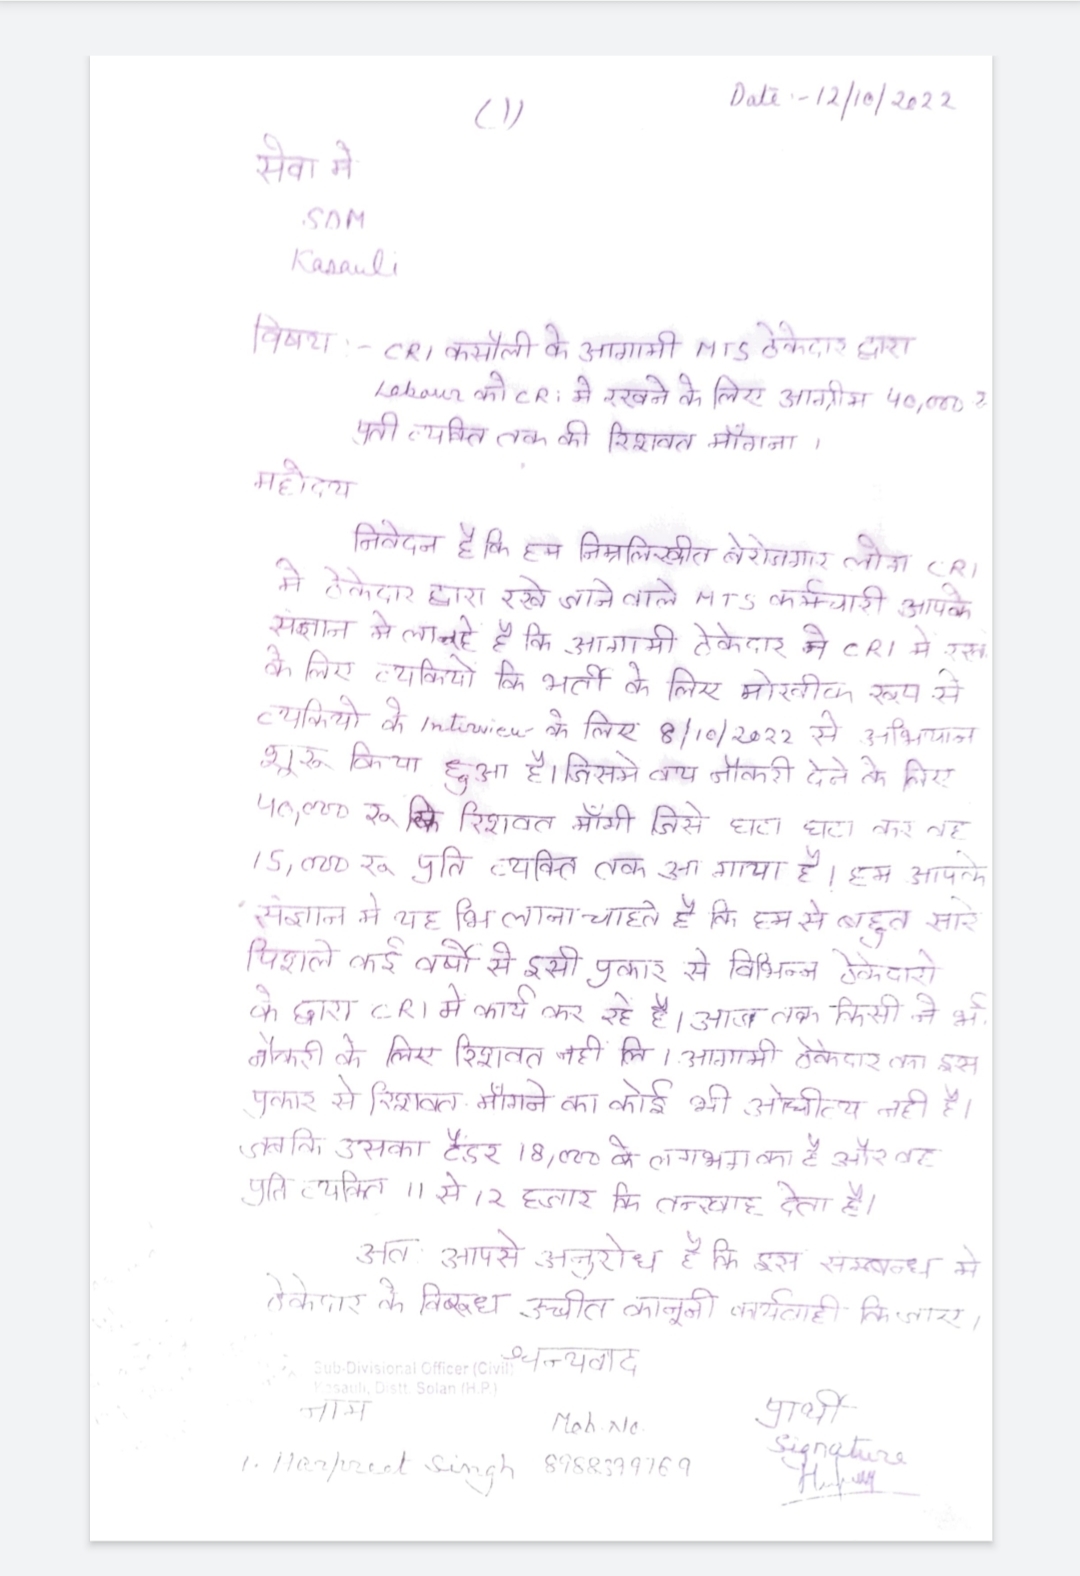 Date :- 12/10/2022
(1)
सेवा मे
SDM
Kasauli
विषय :- CRI कसौली के आगामी MTS ठेकेदार द्वारा
Labour को CRI मे रखने के लिए आग्रीम 40,000 रु
प्रती व्यक्ति तक की रिशवत माँगना ।
महोदय
निवेदन है कि हम निम्नलिखीत बेरोजगार लोग CRI
मे ठेकेदार द्वारा रखे जाने वाले MTS कर्मचारी आपके
संज्ञान मे ला रहे है कि आगामी ठेकेदार ने CRI मे
के लिए व्यकियो कि भर्ती के लिए मोखीक रूप से
व्यकियो के Interview के लिए 8/10/2022 से अभियान
शूरू किया हुआ है। जिसमे वाय नौकरी देने के लिए
40,000 रू कि रिशवत माँगी जिसे घटा घटा कर वह
15,000 रू प्रति व्यक्ति तक आ गाया है। हम आपके
संज्ञान मे यह भि लाना चाहते है कि हम से बहुत सारे
पिशले कई वर्षो से इसी प्रकार से विभिन्न ठेकेदारो
के द्वारा CRI मे कार्य कर रहे है। आज तक किसी ने भी
नौकरी के लिए रिशवत नही लि । आगामी ठेकेदार का इस
प्रकार से रिशवत माँगने का कोई भी औचीत्य नही है।
जबकि उसका टैंडर 18,000 के लगभग का है और वह
प्रति व्यक्ति 11 से 12 हजार कि तन्खाह देता है।
अत आपसे अनुरोध है कि इस सम्बन्ध मे
ठेकेदार के विरूध उच्चीत कानूनी कार्यवाही कि जाए।
धन्यवाद
Sub-Divisional Officer (Civil)
Kasauli, Distt. Solan (H.P.)
नाम Mob. No. प्रार्थी
Signature
1. Harpreet Singh 8988399769